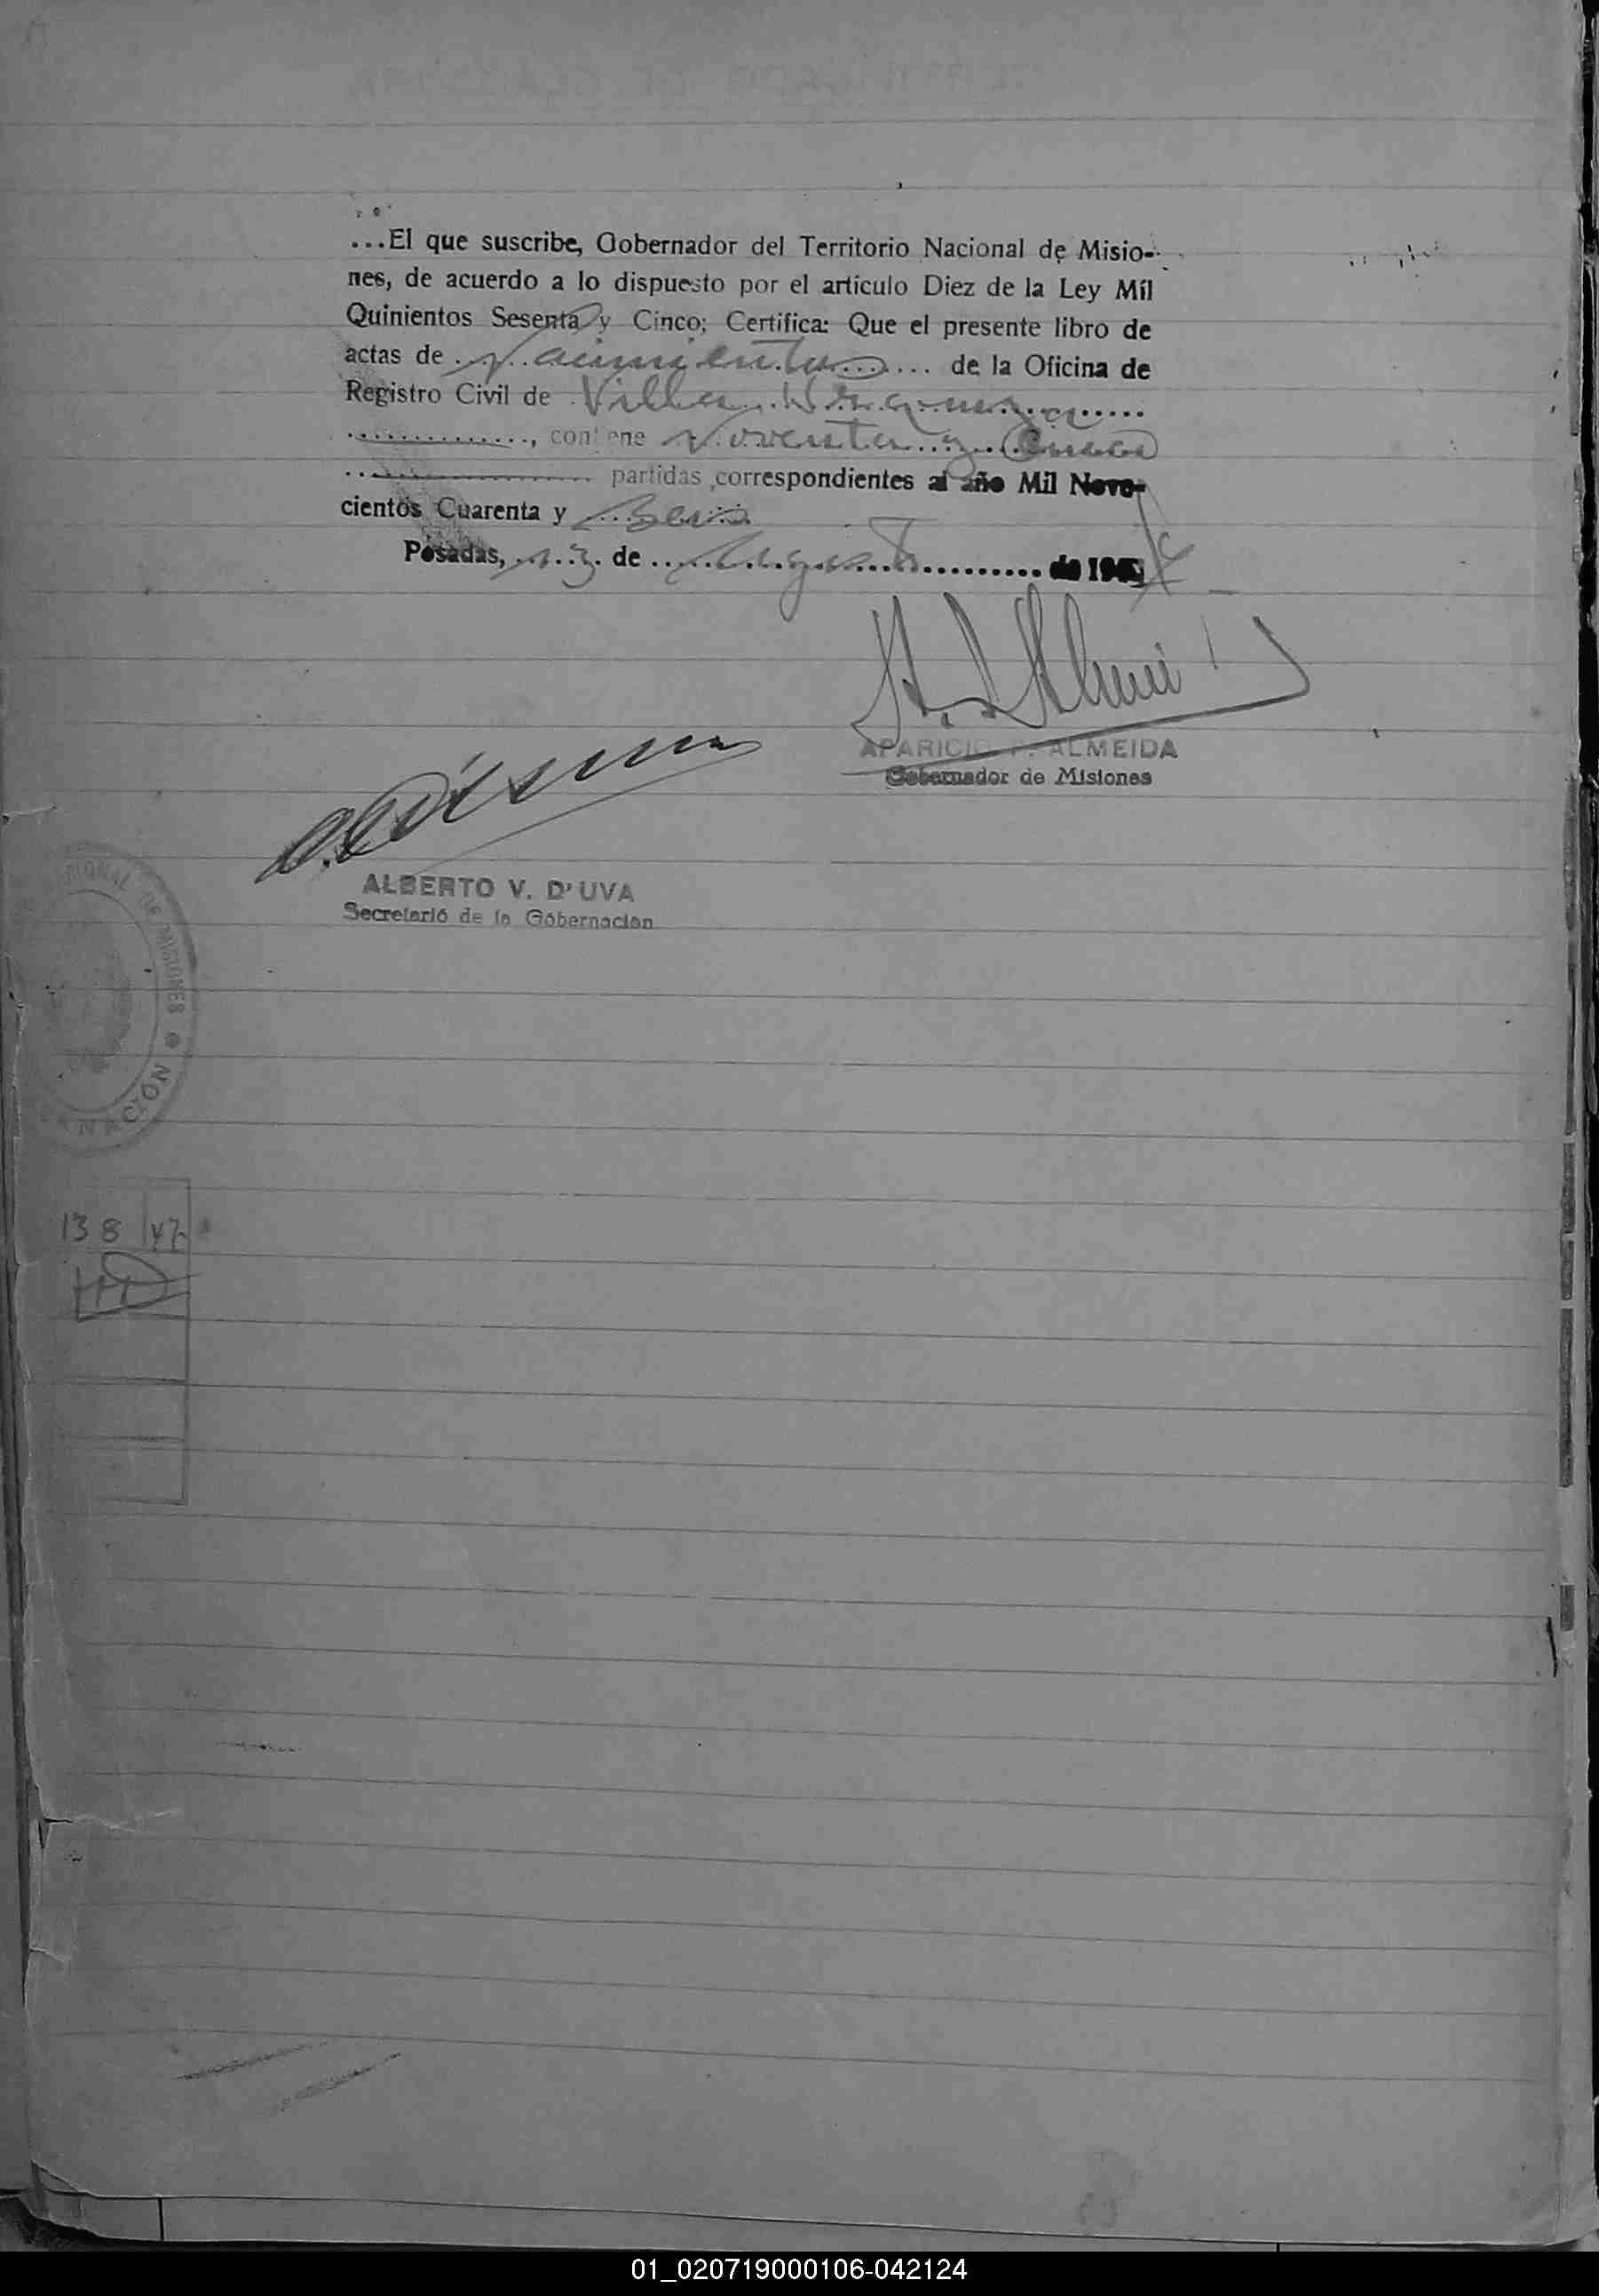 ...El que suscribe, Gobernador del Territorio Nacional de Misio-
nes, de acuerdo a lo dispuesto por el artículo Diez de la Ley Mil
Quinientos Sesenta y Cinco; Certifica: Que el presente libro de
actas de Nacimientos de la Oficina de
Registro Civil de Villa
contiene Noventa y Cinco
partidas correspondientes al año Mil Nove-
cientos Cuarenta y Seis
Posadas, 13 de Agosto de 194
APARICIO ALMEIDA
Gobernador de Misiones
ALBERTO V. D'UVA
Secretario de la Gobernación
DE MISIONES
NACIÓN
138 47
01_020719000106-042124